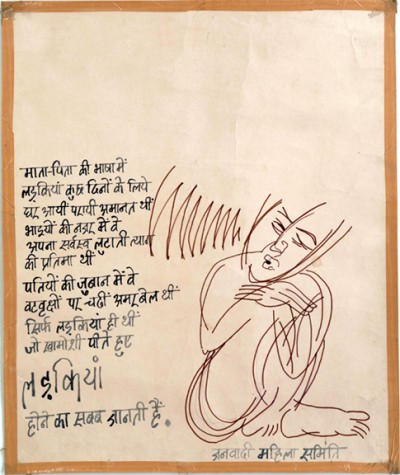 माता-पिता की भाषा में
लड़कियां कुछ दिनों के लिये
घर आयीं परायी अमानत थीं
भाइयों की नज़र में वे
अपना सर्वस्व लुटाती त्याग
की प्रतिमा थीं
पतियों की जुबान में वे
वटवृक्षों पर चढ़ीं अमर बेल थीं
सिर्फ लड़कियां ही थीं
जो खामोशी पीते हुए
लड़कियां
होने का सबब जानती हैं.
जनवादी महिला समिति